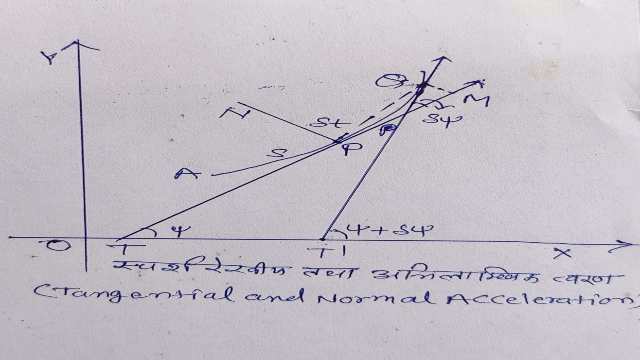 Y
Q
N
M
St
Sψ
P
R
A
S
O
T
ψ
T1
ψ+Sψ
X
स्पर्श रेखीय तथा अभिलाम्बिक त्वरण
(Tangential and Normal Acceleration)